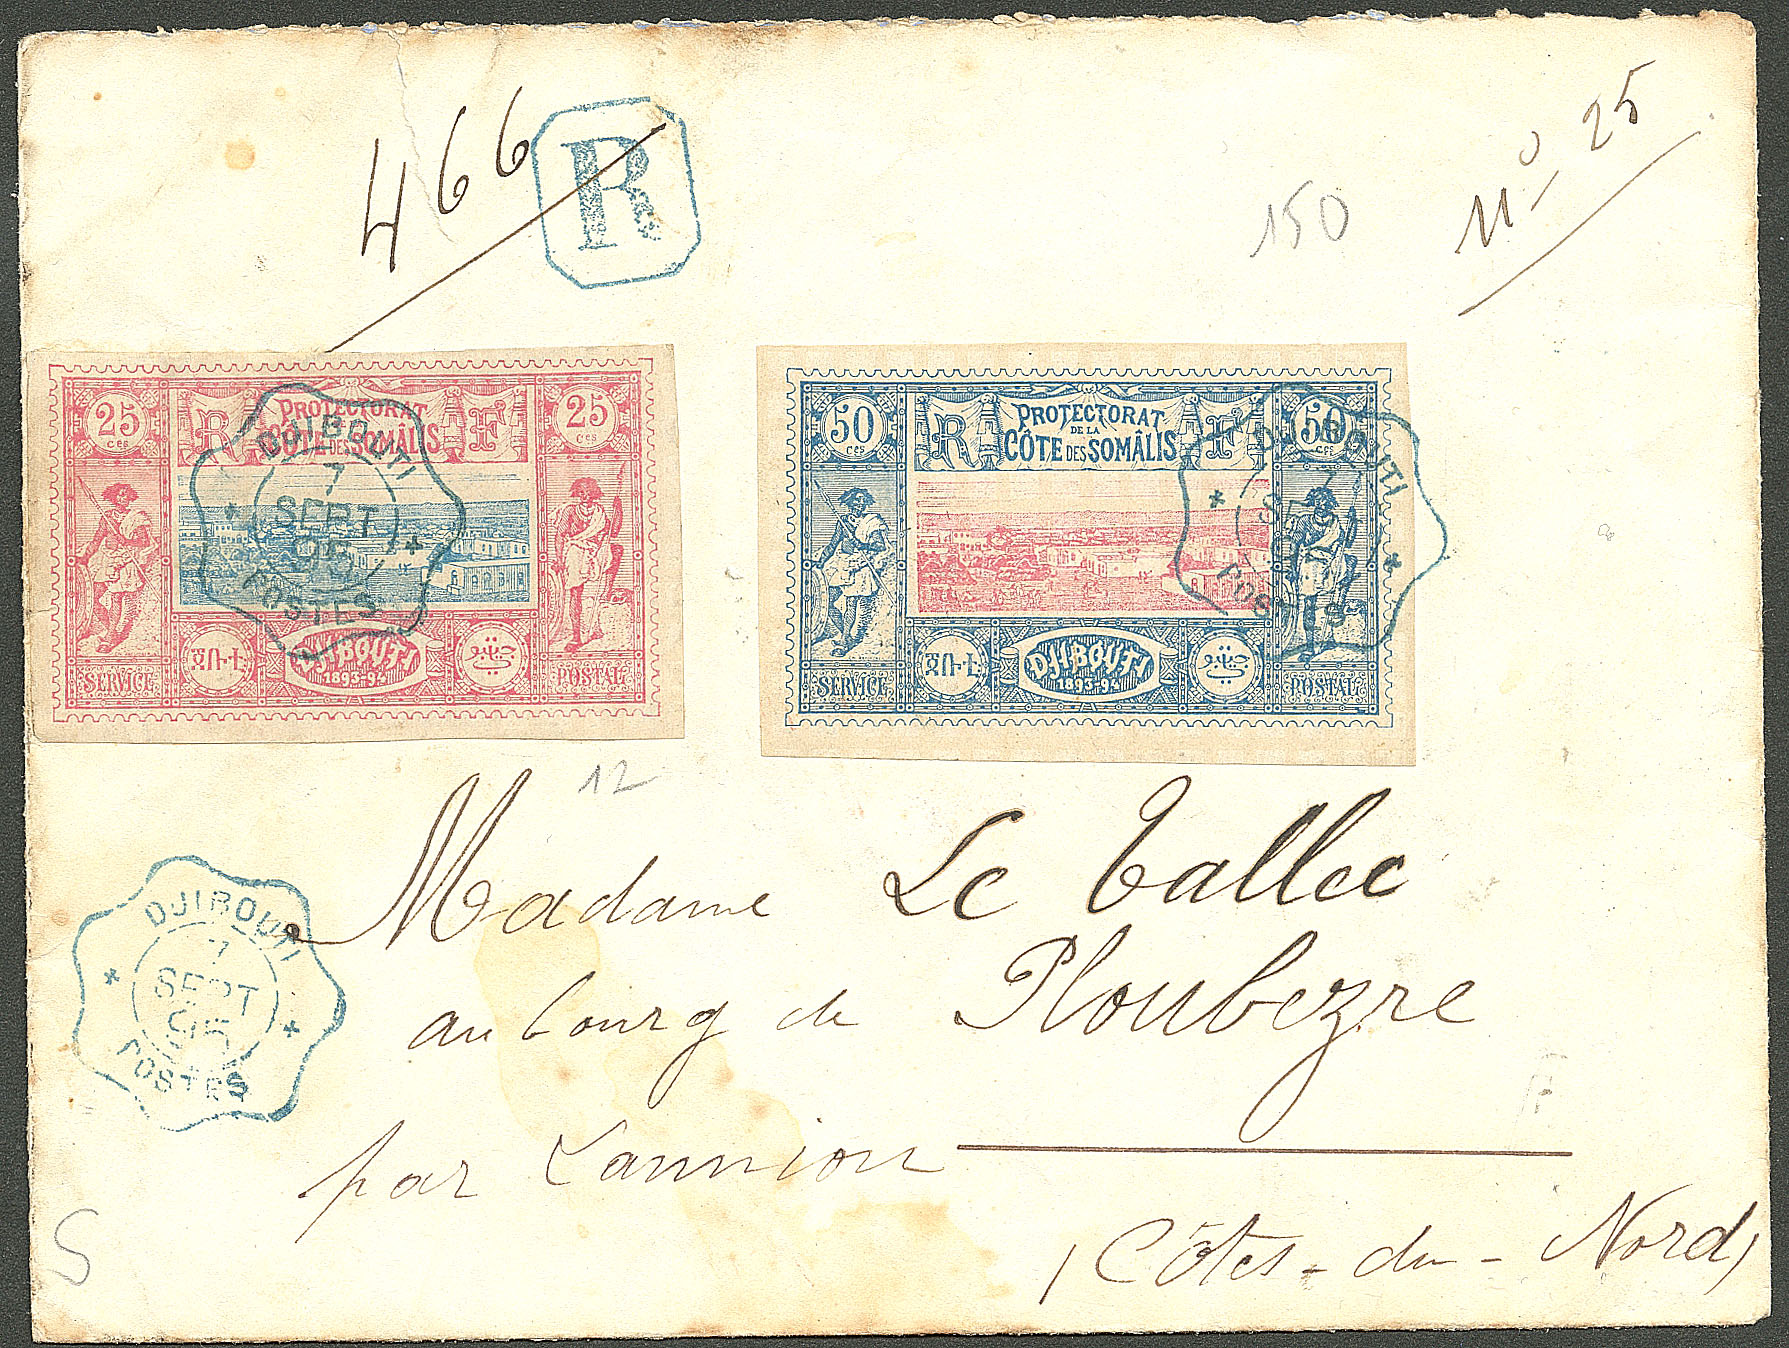 466
R
150
nº 25
25 ces
R PROTECTORAT F
CÔTE DES SOMÂLIS
25 ces
DJIBOUTI
7
SEPT
95
POSTES
SERVICE
DJIBOUTI
1893-94
POSTAL
50 ces
R PROTECTORAT F
DE LA
CÔTE DES SOMÂLIS
50 ces
DJIBOUTI
7
SEPT
POSTES
SERVICE
DJIBOUTI
1893-94
POSTAL
12
Madame Le Tallec
au bourg de Ploubezre
par Lannion
(Côtes-du-Nord)
DJIBOUTI
7
SEPT
95
POSTES
S